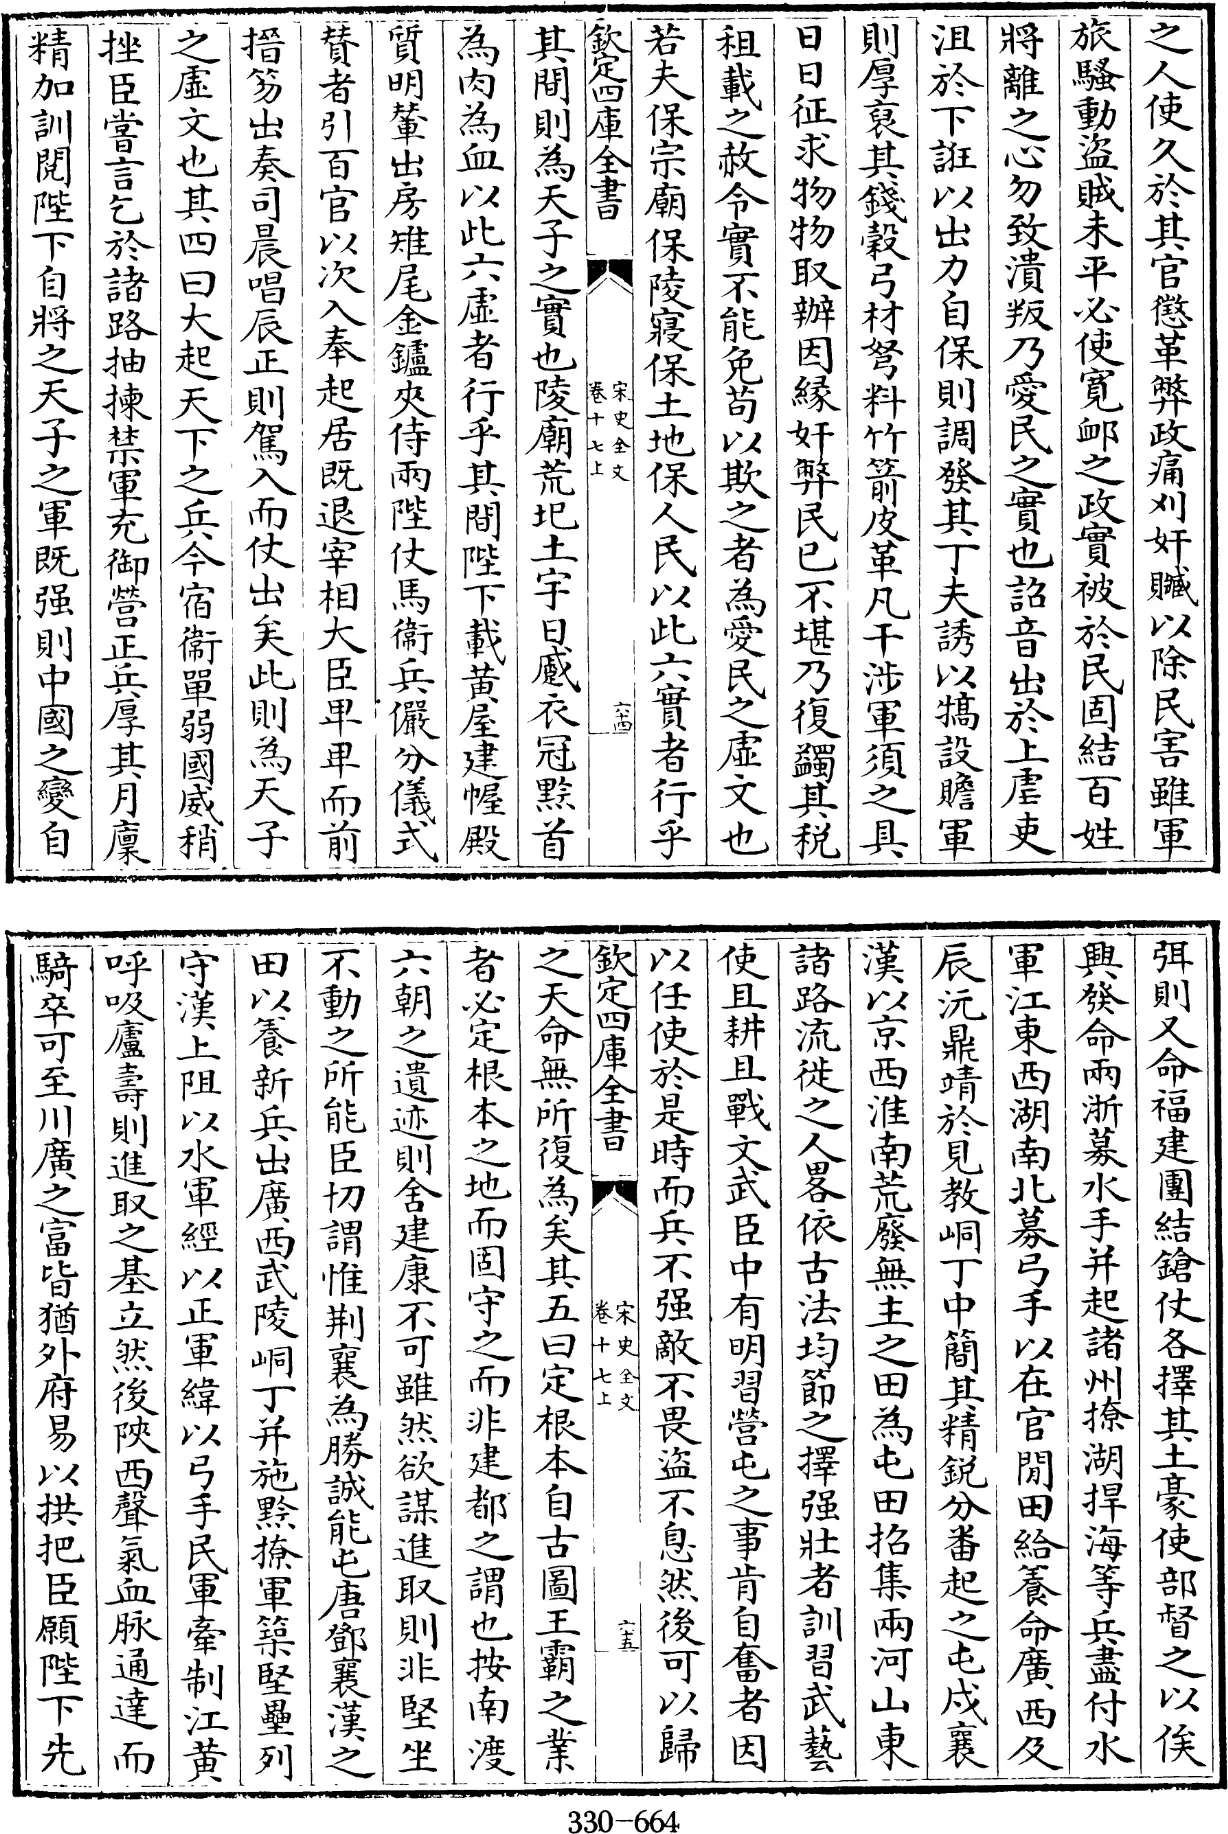 之人使久於其官懲革弊政痛刈奸贜以除民害雖軍
旅騷動盗賊未平必使寛䘏之政實被於民固結百姓
將離之心勿致潰叛乃愛民之實也詔音出於上虐吏
沮於下誑以出力自保則調發其丁夫誘以犒設贍軍
則厚裒其錢榖弓材弩料竹箭皮革凡干涉軍須之具
日日征求物物取辦因緣奸弊民已不堪乃復蠲其税
租載之赦令實不能免苟以欺之者為愛民之虛文也
若夫保宗廟保陵寢保土地保人民以此六實者行乎
欽定四庫全書
宋史全文
卷十七上
六十四
其間則為天子之實也陵廟荒圯土宇日蹙衣冠黥首
為肉為血以此六虛者行乎其間陛下載黄屋建幄殿
質明輦出房雉尾金鑪夾侍兩陛仗馬衞兵儼分儀式
賛者引百官以次入奉起居既退宰相大臣卑卑而前
搢笏出奏司晨唱辰正則駕入而仗出矣此則為天子
之虛文也其四曰大起天下之兵今宿衞單弱國威稍
挫臣嘗言乞於諸路抽揀禁軍充御營正兵厚其月廩
精加訓閲陛下自將之天子之軍既强則中國之變自
弭則又命福建團結鎗仗各擇其土豪使部督之以俟
興發命兩浙募水手并起諸州撩湖捍海等兵盡付水
軍江東西湖南北募弓手以在官閒田給養命廣西及
辰沅鼎靖於見教峒丁中簡其精鋭分番起之屯戍襄
漢以京西淮南荒廢無主之田為屯田招集兩河山東
諸路流徙之人畧依古法均節之擇强壯者訓習武藝
使且耕且戰文武臣中有明習營屯之事肯自奮者因
以任使於是時而兵不强敵不畏盗不息然後可以歸
欽定四庫全書
宋史全文
卷十七上
六十五
之天命無所復為矣其五曰定根本自古圖王霸之業
者必定根本之地而固守之而非建都之謂也按南渡
六朝之遺迹則舍建康不可雖然欲謀進取則非堅坐
不動之所能臣切謂惟荆襄為勝誠能屯唐鄧襄漢之
田以養新兵出廣西武陵峒丁并施黥撩軍築堅壘列
守漢上阻以水軍經以正軍緯以弓手民軍牽制江黄
呼吸廬壽則進取之基立然後陜西聲氣血脉通達而
騎卒可至川廣之富皆猶外府易以拱把臣願陛下先
330-664